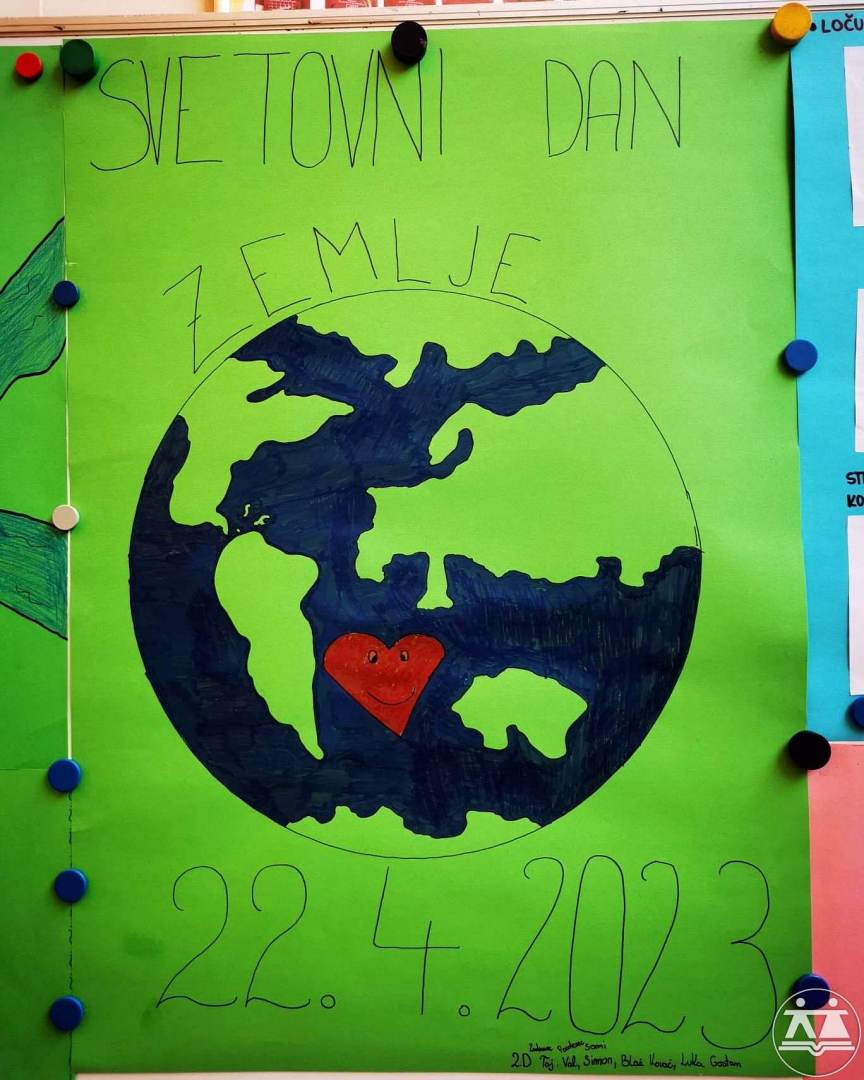 SVETOVNI DAN
ZEMLJE
22.4.2023
Sami
2.D Taj, Val, Simon, Blaž Kovač, Luka
LOČU
STE
KO